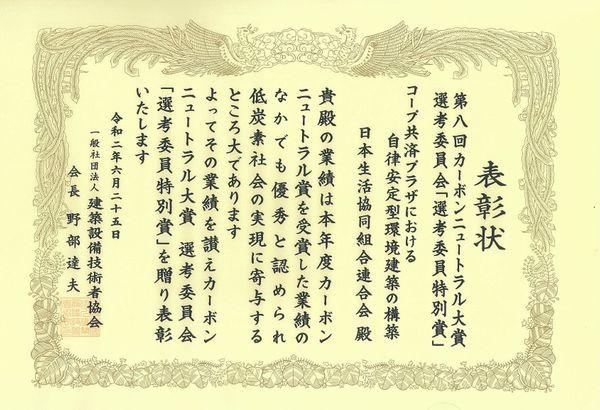 表彰状
第八回 カーボンニュートラル大賞
選考委員会「選考委員特別賞」
コープ共済プラザにおける
自律安定型環境建築の構築
日本生活協同組合連合会 殿
貴殿の業績は本年度カーボン
ニュートラル賞を受賞した業績の
なかでも優秀と認められ
低炭素社会の実現に寄与する
ところ大であります
よってその業績を讃えカーボン
ニュートラル大賞 選考委員会
「選考委員特別賞」を贈り表彰
いたします
令和二年六月二十五日
一般社団法人 建築設備技術者協会
会長 野部達夫